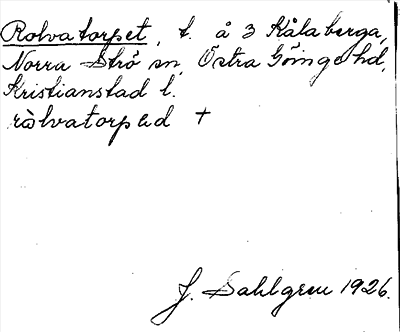 Rolvatorpet, t. å 3 Kålaberga,
Norra Strö sn, Östra Göinge hd,
Kristianstad l.
ròlvatorpəd †
J. Sahlgren 1926.